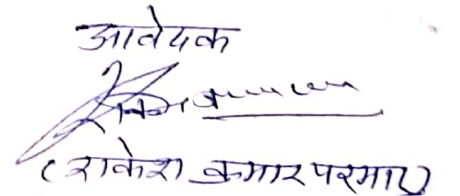 आवेदक
(राकेश कुमार परमार)